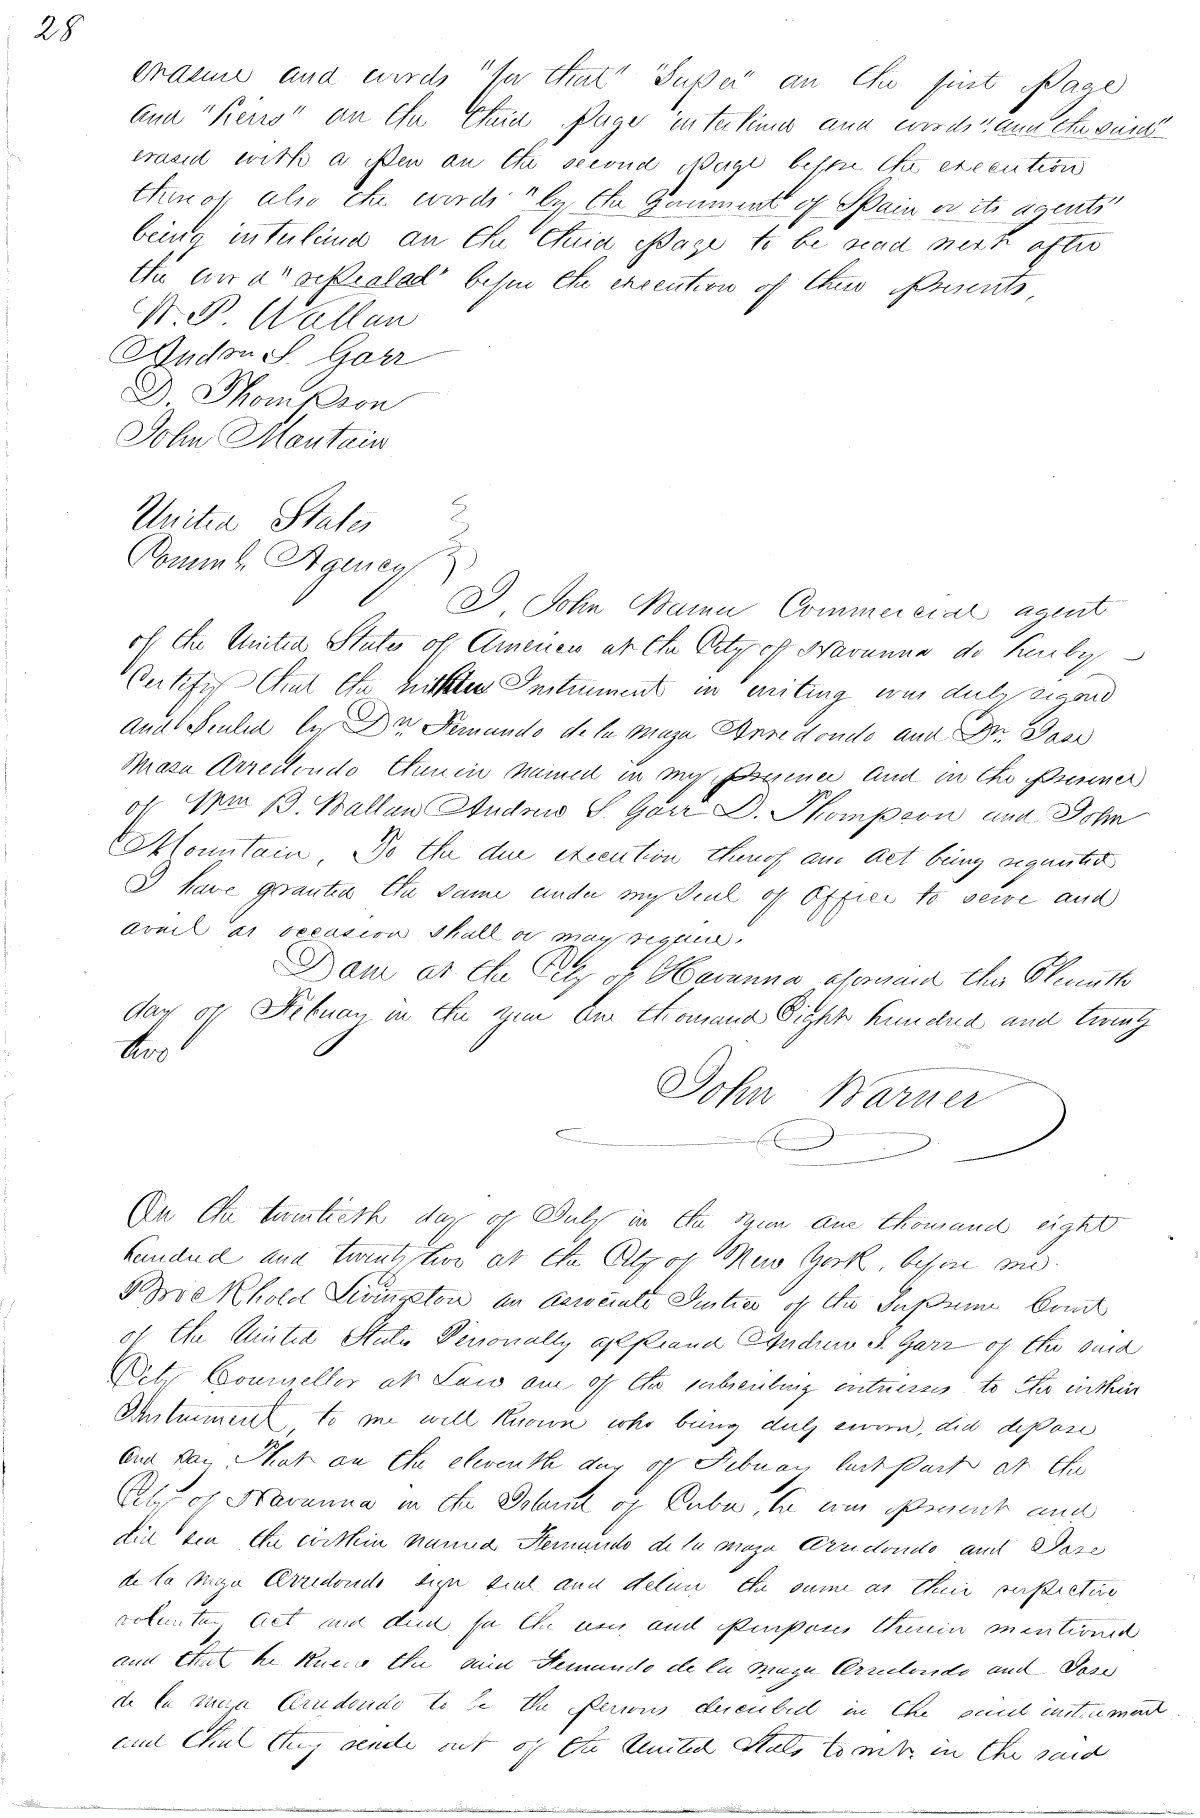 28
erasure and words "for that" "Super" on the first Page
and "Heirs" on the third Page interlined and words "and the said"
erased with a Pen on the second Page before the execution
thereof also the words "by the Goverment of Spain or its agents"
being interlined on the third Page to be read next after
the word "repealed" before the execution of these Presents,
W. P. Wallan
Andrw S. Garr
D. Thompson
John Mantain
United States
Comml. Agency
I, John Warner Commercial agent
of the United States of America at the City of Havanna do hereby
Certify that the within Instrument in writing was duly signed
and Sealed by Dn. Fernando de la maza Arredondo and Dn. Jose
Maza Arredondo therein named in my presence and in the presence
of Wm B. Wallan Andrew S. Garr D. Thompson and John
Mountain, To the due execution thereof an act being requested
I have granted the same under my Seal of Office to serve and
avail as occasion shall or may require.
Done at the City of Havanna aforesaid this Eleventh
day of Febuary in the year one thousand Eight hundred and twenty
two
John Warner
On the twentieth day of July in the year one thousand eight
hundred and twenty two at the City of New York, before me
Brockhold Livingston an associate Justice of the Supreme Court
of the United States Personally appeared Andrew S. Garr of the said
City Counsellor at Law one of the subscribing witnesses to the within
Instrument to me well known who being duly sworn, did depose
and say, That on the eleventh day of Febuary last past at the
City of Havanna in the Island of Cuba, he was Present and
did see the within named Fernando de la maza Arredondo and Jose
de la maza Arredondo sign seal and deliver the same as their respective
voluntary act and deed for the uses and purposes therein mentioned
and that he knew the said Fernando de la maza Arredondo and Jose
de la maza Arredondo to be the persons described in the said instrument
and that they reside out of the United States to wit. in the said